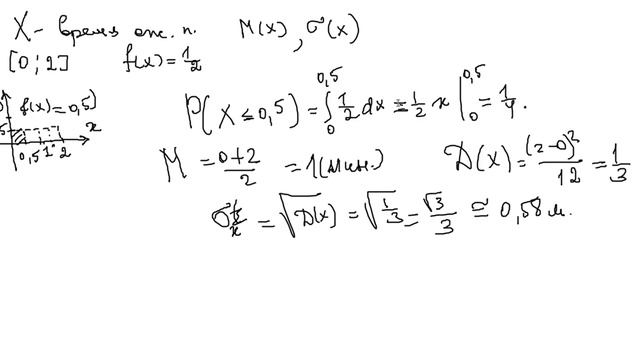 X - время ож. п. M(x), σ(x)
[0; 2] f(x) = 1/2
f(x) = 0,5
P(X ≤ 0,5) = ∫₀^0,5 1/2 dx = 1/2 x |₀^0,5 = 1/4.
x
0,5 1 2
M = 0+2/2 = 1 (мин.) D(x) = (2-0)²/12 = 1/3
σ x = √D(x) = √1/3 = √3/3 ≅ 0,58 м.